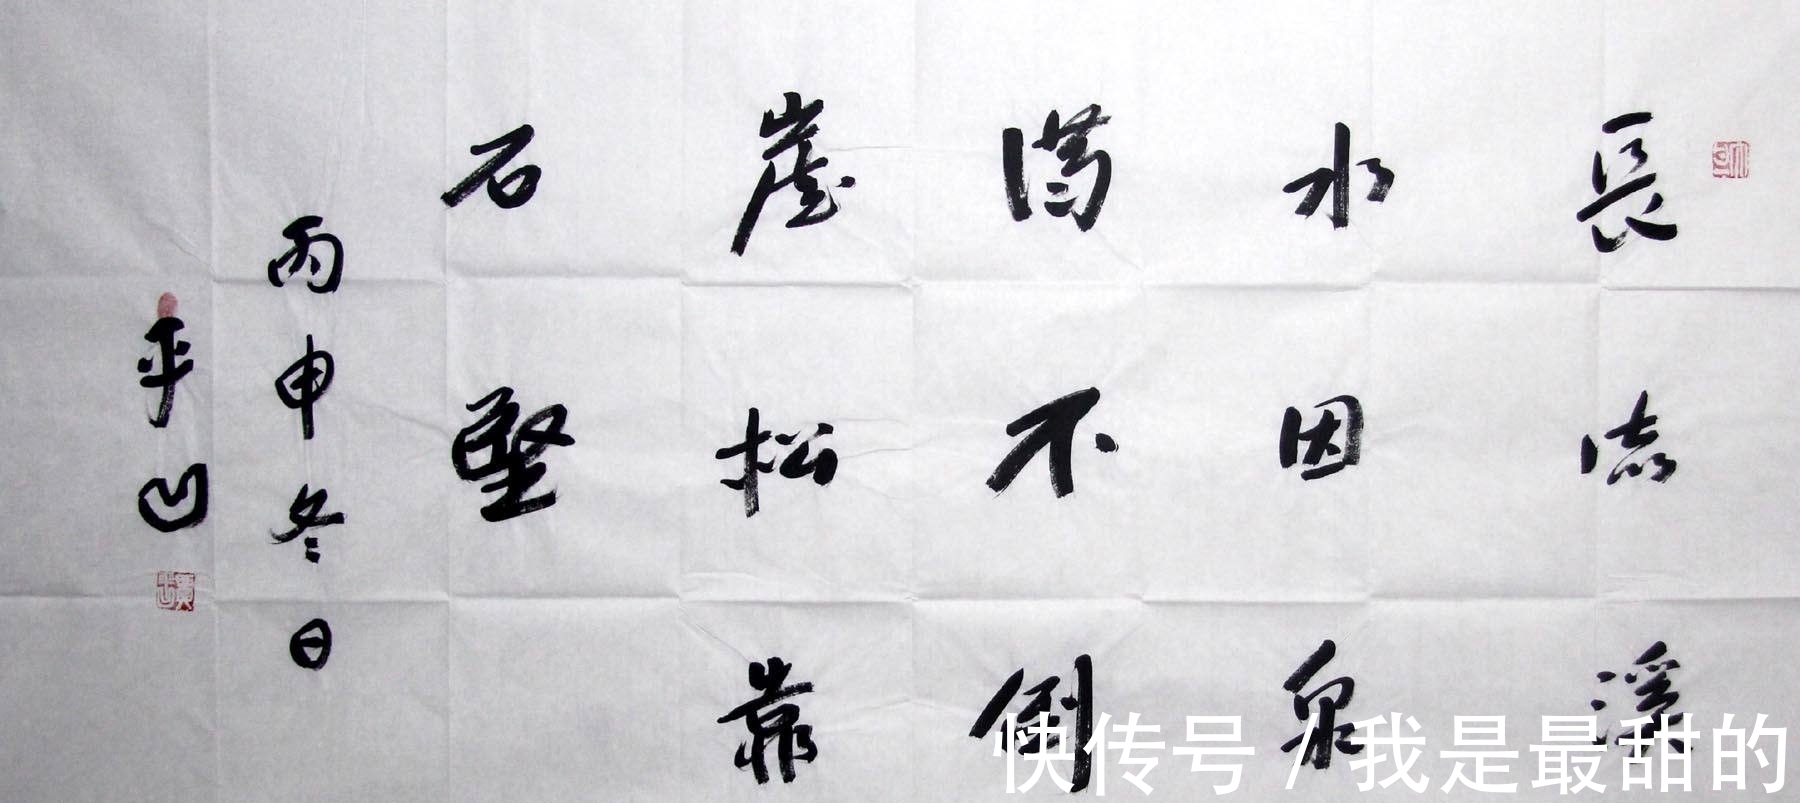 長流溪
水因泉
满不倒
崖松靠
石堅
丙申冬日
平凹
快传号 / 我是最甜的